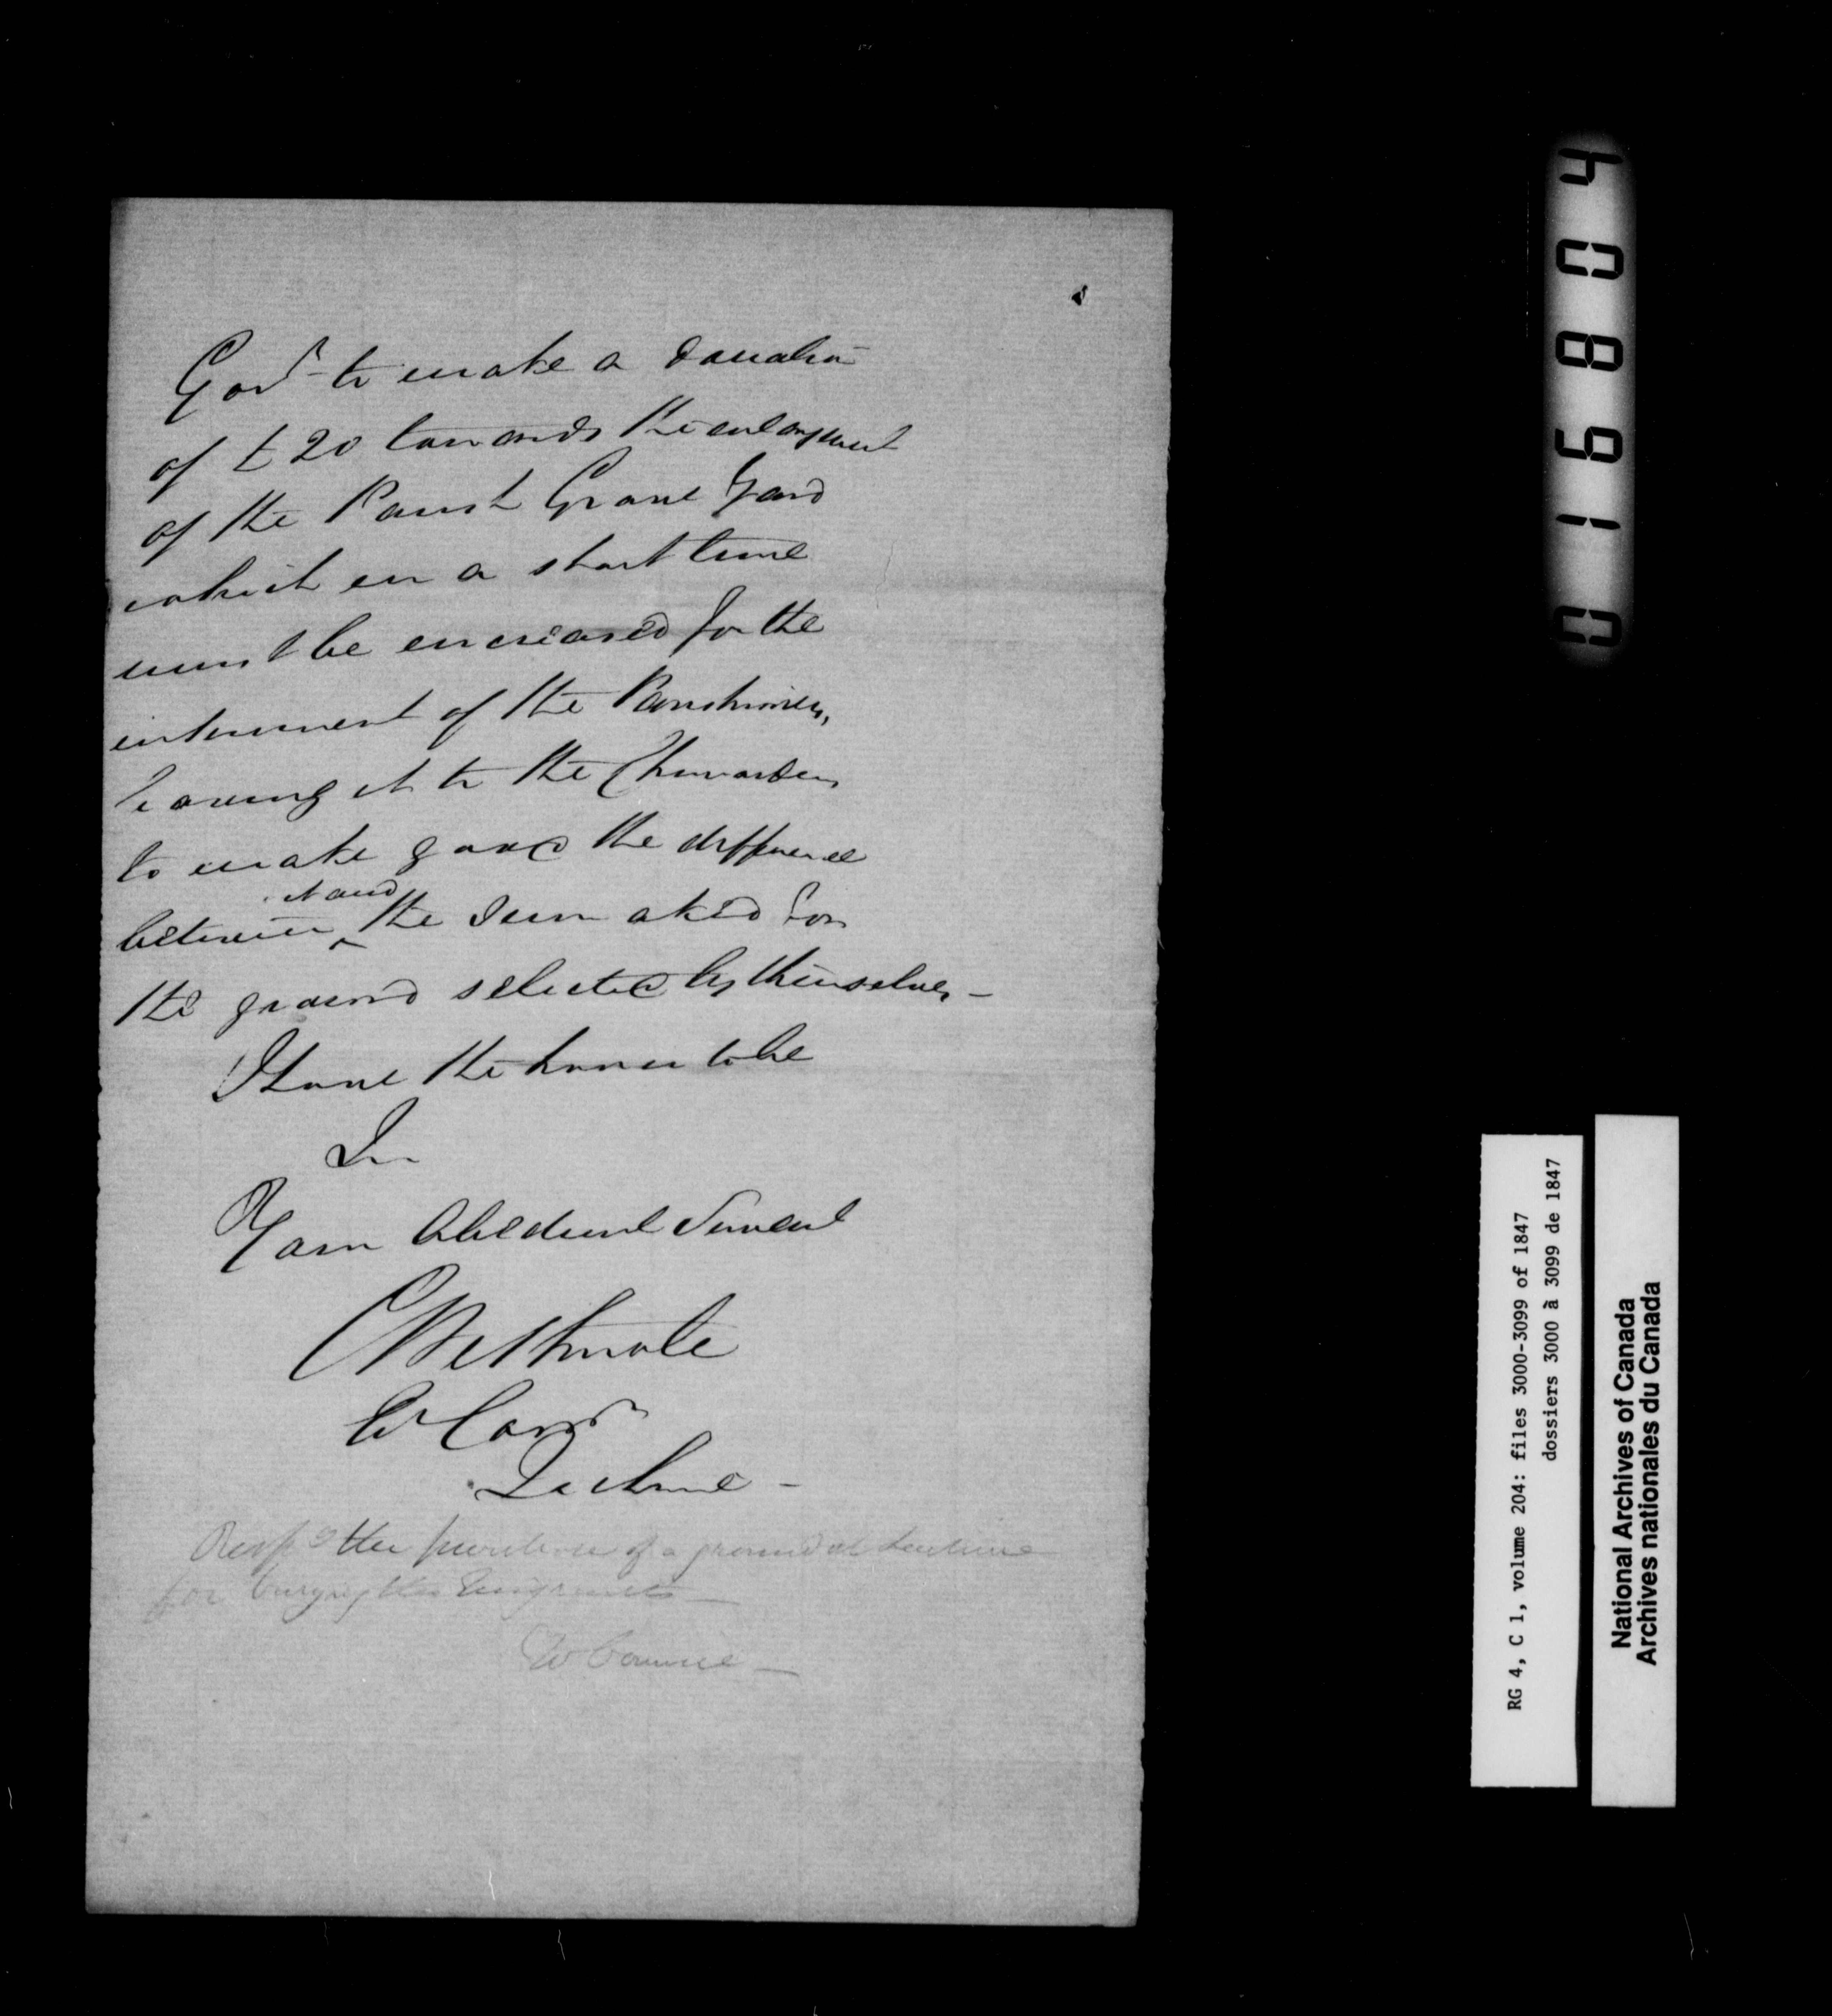 Govr to make a donation
of £20 towards the enlargment
of the Parish Grave Yard
which in a short time
must be encreased for the
interment of the Parishioners,
leaving it to the Chuwardens
to make good the difference
between ^it and the Sum asked for
the ground selected by themselves -
I have the honor to be
Sir
Your Obedient Servant
E Comr
Lachine -
Respg the purchase of a ground at Lachine
for burying the Emigrants -
Ex Council -
016804
RG 4, C 1, volume 204: files 3000-3099 of 1847
dossiers 3000 à 3099 de 1847
National Archives of Canada
Archives nationales du Canada